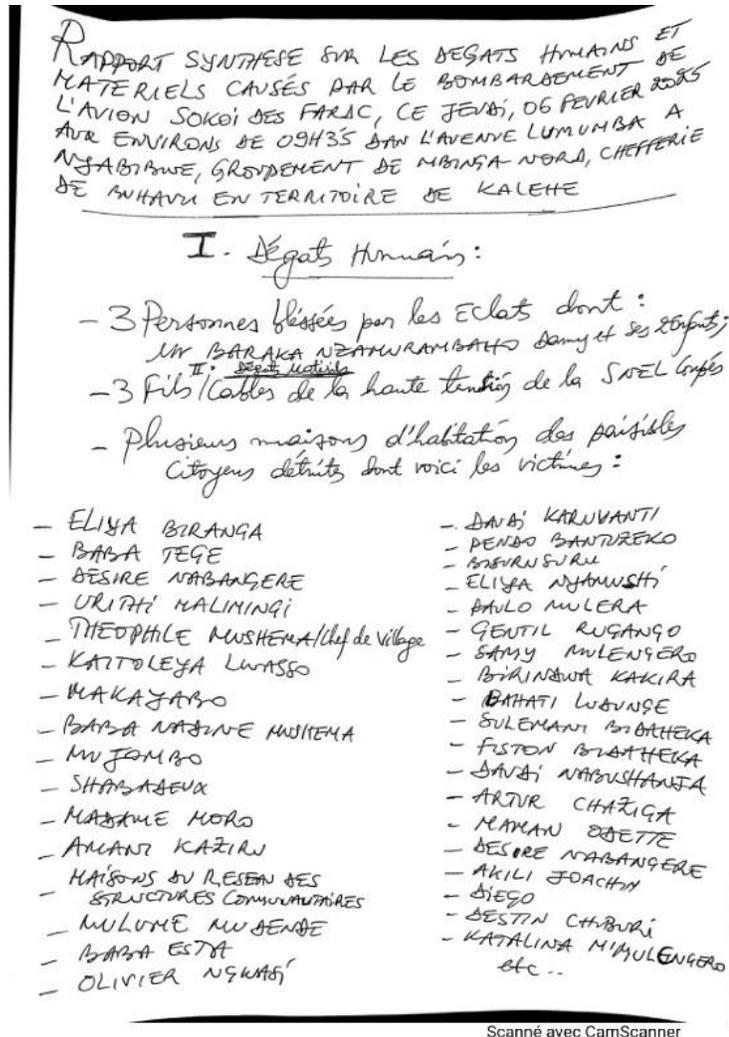 RAPPORT SYNTHESE SUR LES DEGATS HUMAINS ET
MATERIELS CAUSÉS PAR LE BOMBARDEMENT DE
L'AVION SOKOI DES FARDC, CE JEUDI, 06 FEVRIER 2025
AUX ENVIRONS DE 09H35 DAN L'AVENUE LUMUMBA A
NYABIBWE, GROUPEMENT DE MBINGA-NORD, CHEFFERIE
DE BUHAVU EN TERRITOIRE DE KALEHE
I. Dégats Humains:
- 3 Personnes bléssées par les Eclats dont:
Mr BARAKA NZAMURAMBAHO Damy et ses 2 Enfants;
II. Dégats Matériels
- 3 Fils/Cables de la haute tension de la SNEL Coupés
- Plusieurs maisons d'habitation des paisibles
Citoyens détruits dont voici les victimes:
- ELIYA BIRANGA
- BABA TEGE
- DESIRE NABANGERE
- MALIMINGI
- THEOPHILE MUSHEMA/Chef de Village
- KAITOLEYA LWASSO
- MAKAYABO
- BABA NADINE MUSHEMA
- MUJOMBO
- SHABADEUX
- MADAME MORO
- AMANI KAZIRU
- MAISONS DU RESEAU DES
STRUCTURES COMMUNAUTAIRES
- MULUME MUDENDE
- BABA ESTA
- OLIVIER NGWASI
- DAVDI KARUVANTI
- PENDO BANTUZEKO
- BISURUSURU
- ELIYA NYAMUSHI
- PAULO MULERA
- GENTIL RUGANGO
- SAMY MULENGERO
- BIRINDWA KAKIRA
- BAHATI LUDUNGE
- SULEMANI BIDAHEKA
- FISTON BIDAHEKA
- DAVDI NABUSHANJA
- ARTUR CHAZIGA
- MAMAN ODETTE
- DESIRE NABANGERE
- AKILI JOACHIN
- DIEGO
- DESTIN CHIBURI
- KATALINA M'MULENGERO
etc..
Scanné avec CamScanner